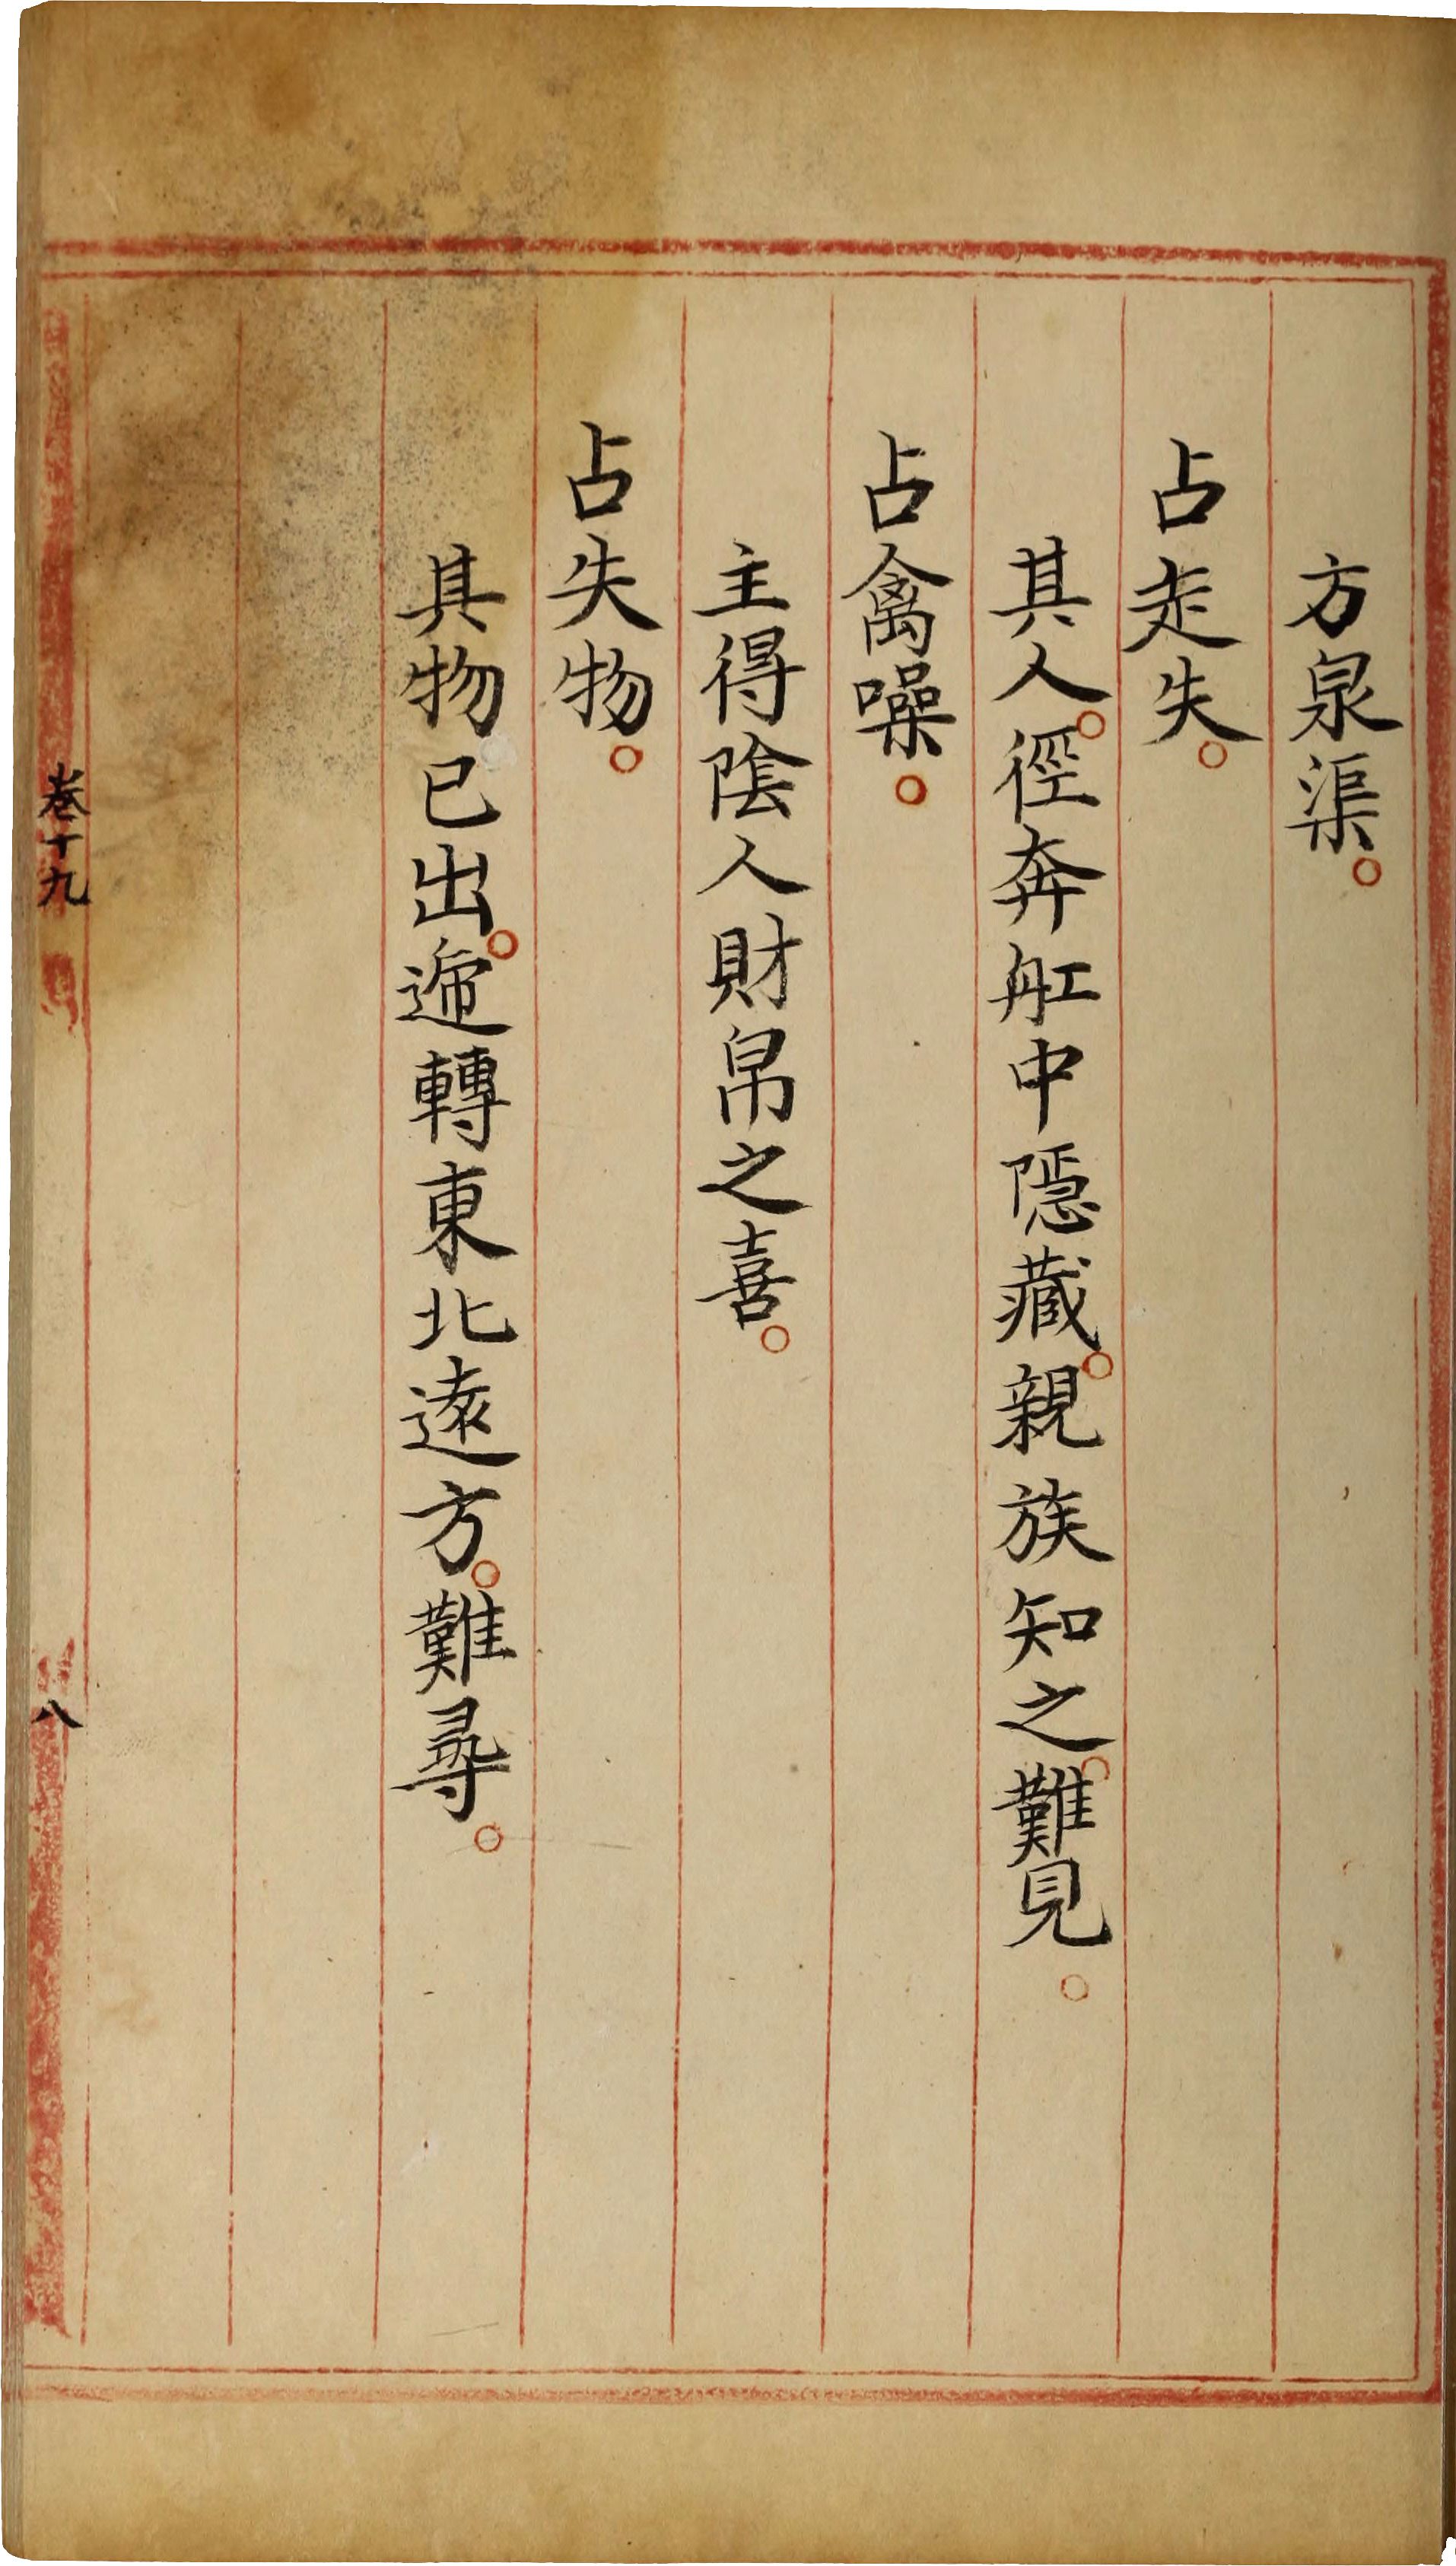 方泉渠。
占走失。
其人。徑奔舡中隱藏。親族知之。難見。
占禽噪。
主得陰人財帛之喜。
占失物。
其物已出。遞轉東北遠方。難尋。
卷十九
八